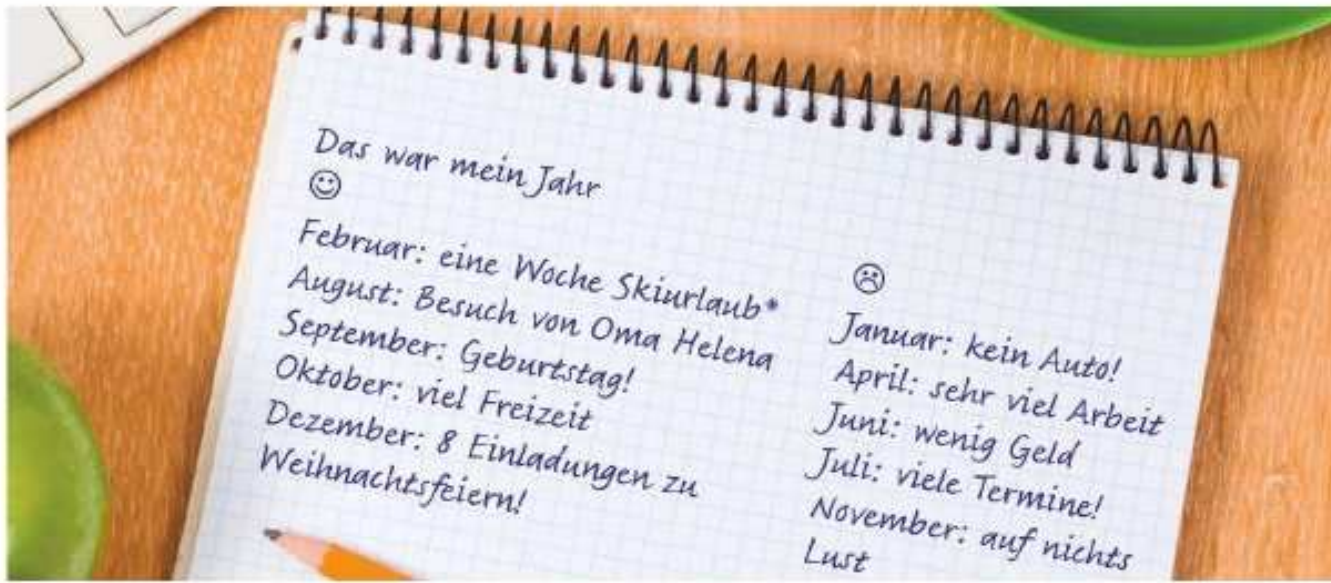 Das war mein Jahr
☺
Februar: eine Woche Skiurlaub*
August: Besuch von Oma Helena
September: Geburtstag!
Oktober: viel Freizeit
Dezember: 8 Einladungen zu
Weihnachtsfeiern!
☹
Januar: kein Auto!
April: sehr viel Arbeit
Juni: wenig Geld
Juli: viele Termine!
November: auf nichts
Lust